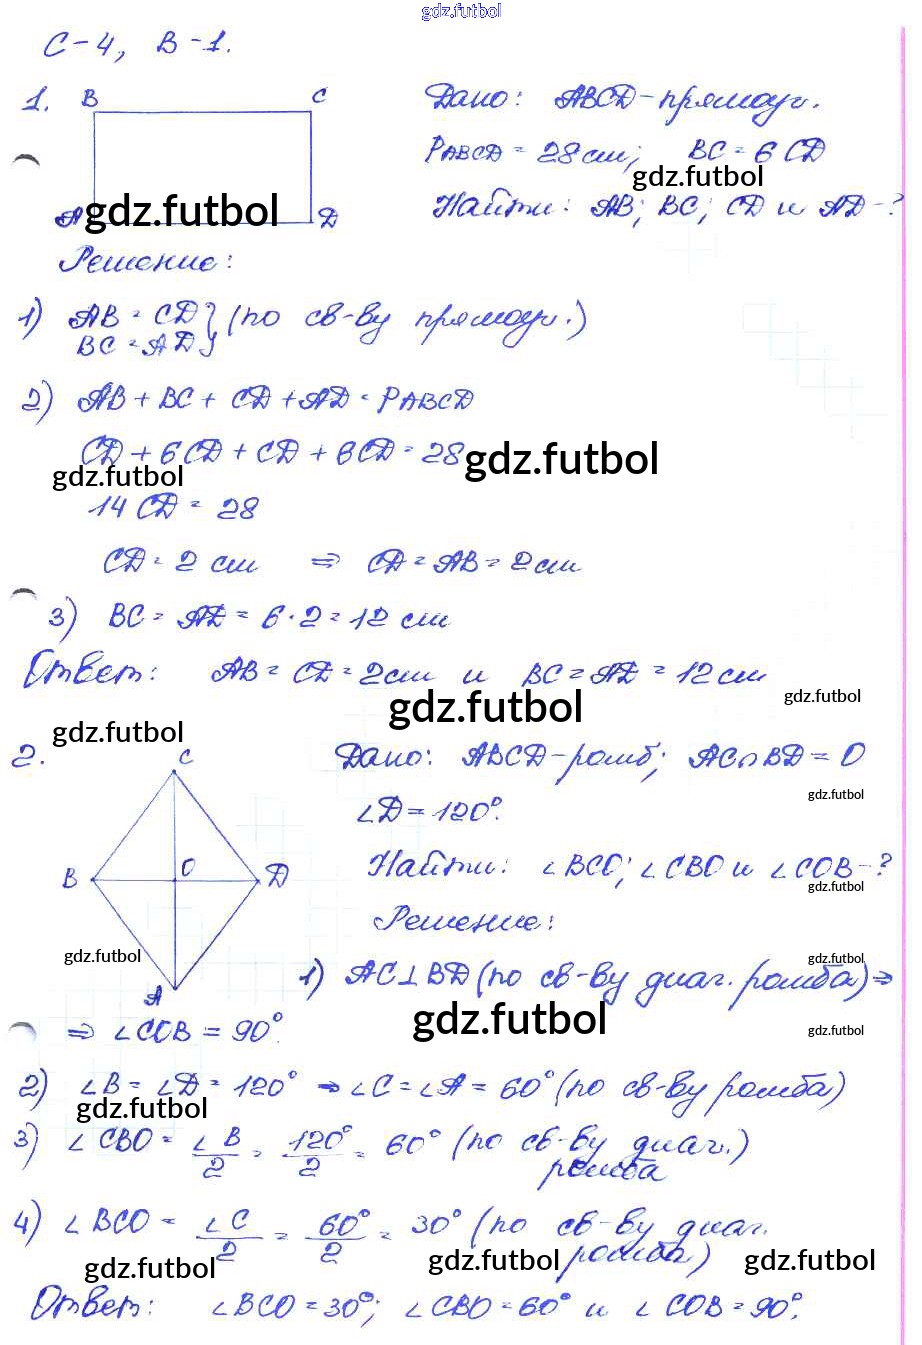 gdz.futbol
С-4, В-1.
1. B C
Дано: ABCD-прямоуг.
PABCD = 28 см; BC = 6 CD
gdz.futbol
A D
gdz.futbol
Найти: AB; BC; CD и AD-?
Решение:
1) AB = CD } (по св-ву прямоуг.)
BC = AD }
2) AB + BC + CD + AD = PABCD
CD + 6CD + CD + 6CD = 28
gdz.futbol
gdz.futbol
14 CD = 28
CD = 2 см ⇒ CD = AB = 2см
3) BC = AD = 6·2 = 12 см
Ответ: AB = CD = 2см и BC = AD = 12 см
gdz.futbol
gdz.futbol
gdz.futbol
2. C
Дано: ABCD-ромб; AC∩BD = O
gdz.futbol
∠D = 120°.
B O D
Найти: ∠BCO; ∠CBO и ∠COB-?
gdz.futbol
Решение:
gdz.futbol
gdz.futbol
A
1) AC⊥BD (по св-ву диаг. ромба) ⇒
gdz.futbol
gdz.futbol
⇒ ∠COB = 90°.
2) ∠B = ∠D = 120° ⇒ ∠C = ∠A = 60° (по св-ву ромба)
gdz.futbol
3) ∠CBO = ∠B/2 = 120°/2 = 60° (по св-ву диаг.)
ромба
4) ∠BCO = ∠C/2 = 60°/2 = 30° (по св-ву диаг.
ромба)
gdz.futbol
gdz.futbol
gdz.futbol
Ответ: ∠BCO = 30°; ∠CBO = 60° и ∠COB = 90°.